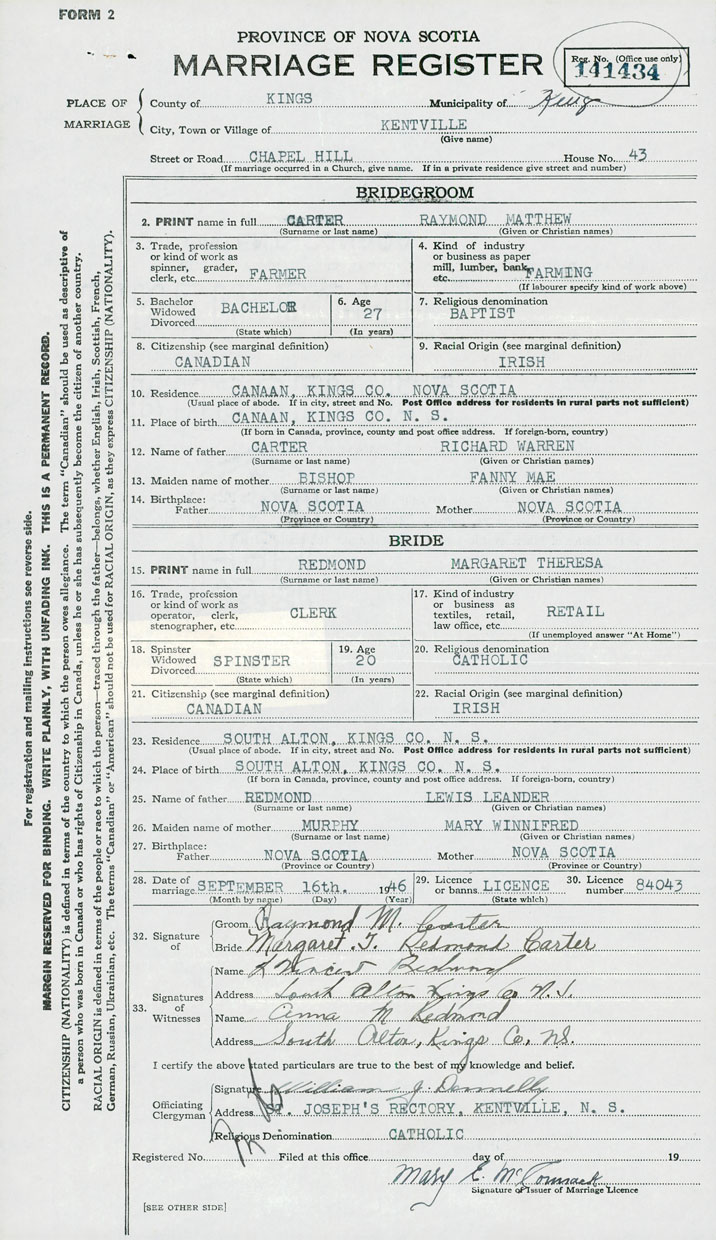 FORM 2
PROVINCE OF NOVA SCOTIA
MARRIAGE REGISTER
Reg. No. (Office use only)
141434
PLACE OF MARRIAGE
County of KINGS Municipality of Kings
City, Town or Village of KENTVILLE
(Give name)
Street or Road CHAPEL HILL House No. 43
(If marriage occurred in a Church, give name. If in a private residence give street and number)
BRIDEGROOM
2. PRINT name in full CARTER RAYMOND MATTHEW
(Surname or last name) (Given or Christian names)
3. Trade, profession or kind of work as spinner, grader, clerk, etc. FARMER
4. Kind of industry or business as paper mill, lumber, bank, etc. FARMING
(If labourer specify kind of work above)
5. Bachelor Widowed Divorced BACHELOR
(State which)
6. Age 27
(In years)
7. Religious denomination
BAPTIST
8. Citizenship (see marginal definition)
CANADIAN
9. Racial Origin (see marginal definition)
IRISH
10. Residence CANAAN, KINGS CO. NOVA SCOTIA
(Usual place of abode. If in city, street and No. Post Office address for residents in rural parts not sufficient)
11. Place of birth CANAAN, KINGS CO. N. S.
(If born in Canada, province, county and post office address. If foreign-born, country)
12. Name of father CARTER RICHARD WARREN
(Surname or last name) (Given or Christian names)
13. Maiden name of mother BISHOP FANNY MAE
(Surname or last name) (Given or Christian names)
14. Birthplace:
Father NOVA SCOTIA Mother NOVA SCOTIA
(Province or Country) (Province or Country)
BRIDE
15. PRINT name in full REDMOND MARGARET THERESA
(Surname or last name) (Given or Christian names)
16. Trade, profession or kind of work as operator, clerk, stenographer, etc. CLERK
17. Kind of industry or business as textiles, retail, law office, etc. RETAIL
(If unemployed answer "At Home")
18. Spinster Widowed Divorced SPINSTER
(State which)
19. Age 20
(In years)
20. Religious denomination
CATHOLIC
21. Citizenship (see marginal definition)
CANADIAN
22. Racial Origin (see marginal definition)
IRISH
23. Residence SOUTH ALTON, KINGS CO. N. S.
(Usual place of abode. If in city, street and No. Post Office address for residents in rural parts not sufficient)
24. Place of birth SOUTH ALTON, KINGS CO. N. S.
(If born in Canada, province, county and post office address. If foreign-born, country)
25. Name of father REDMOND LEWIS LEANDER
(Surname or last name) (Given or Christian names)
26. Maiden name of mother MURPHY MARY WINNIFRED
(Surname or last name) (Given or Christian names)
27. Birthplace:
Father NOVA SCOTIA Mother NOVA SCOTIA
(Province or Country) (Province or Country)
28. Date of marriage SEPTEMBER 16th. 1946
(Month by name) (Day) (Year)
29. Licence or banns LICENCE
(State which)
30. Licence number 84043
32. Signature of
Groom Raymond M. Carter
Bride Margaret T. Redmond Carter
33. Signatures of Witnesses
Name Vincent Redmond
Address South Alton Kings Co N.S.
Name Anna M Redmond
Address South Alton, Kings Co, NS.
I certify the above stated particulars are true to the best of my knowledge and belief.
Officiating Clergyman
Signature William J. Donnelly
Address ST. JOSEPH'S RECTORY, KENTVILLE, N. S.
Religious Denomination CATHOLIC
Registered No. Filed at this office day of 19
Mary E. McCormack
Signature of Issuer of Marriage Licence
[SEE OTHER SIDE]
For registration and mailing instructions see reverse side.
MARGIN RESERVED FOR BINDING. WRITE PLAINLY, WITH UNFADING INK. THIS IS A PERMANENT RECORD.
CITIZENSHIP (NATIONALITY) is defined in terms of the country to which the person owes allegiance. The term "Canadian" should be used as descriptive of
a person who was born in Canada or who has rights of Citizenship in Canada, unless he or she has subsequently become the citizen of another country.
RACIAL ORIGIN is defined in terms of the people or race to which the person—traced through the father—belongs, whether English, Irish, Scottish, French,
German, Russian, Ukrainian, etc. The terms "Canadian" or "American" should not be used for RACIAL ORIGIN, as they express CITIZENSHIP (NATIONALITY).